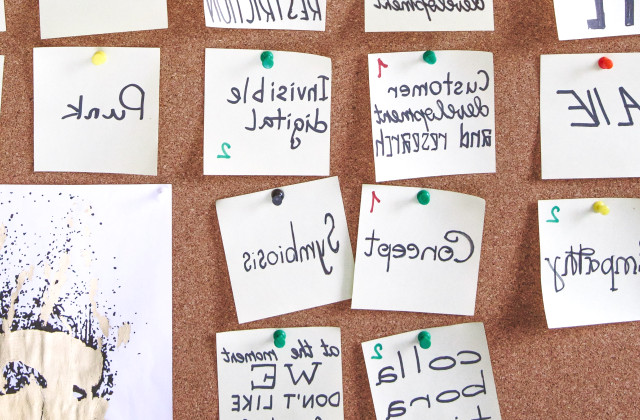 RESTRICTION
development
Punk
Invisible
digital
2
1
Customer
development
and research
Symbiosis
1
Concept
2
mpathy
at the moment
WE
DON'T LIKE
2
colla
bora